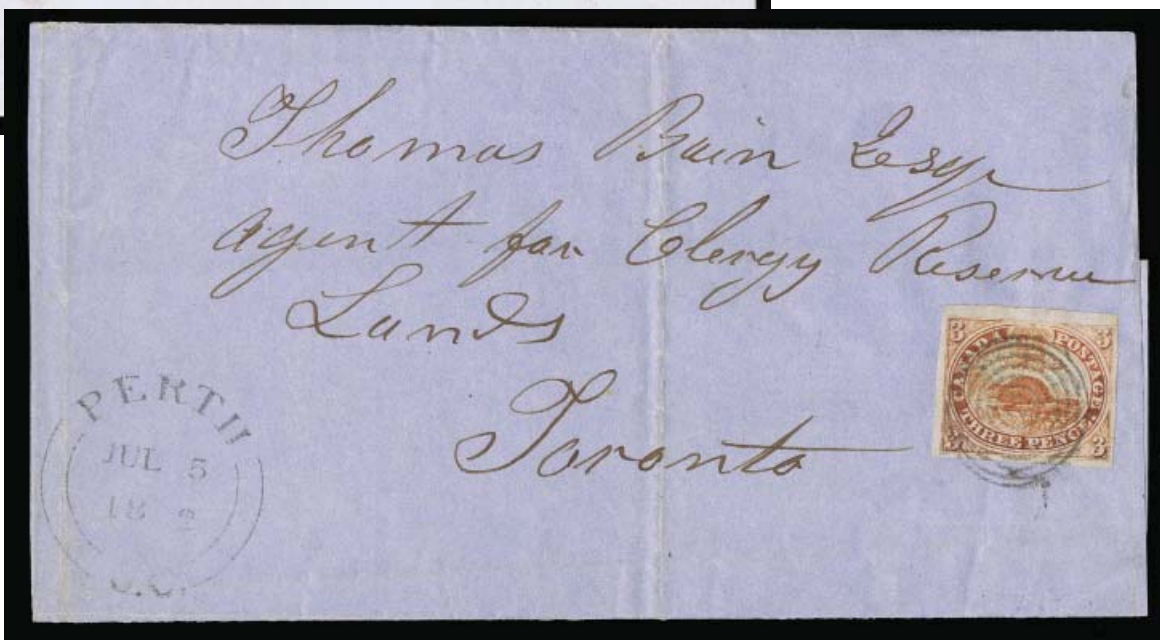 Thomas Bain Esqr
Agent for Clergy Reserve
Lands
Toronto
PERTH
JUL 5
18
U.C.
3 3
CANADA POSTAGE
THREE PENCE
3 3